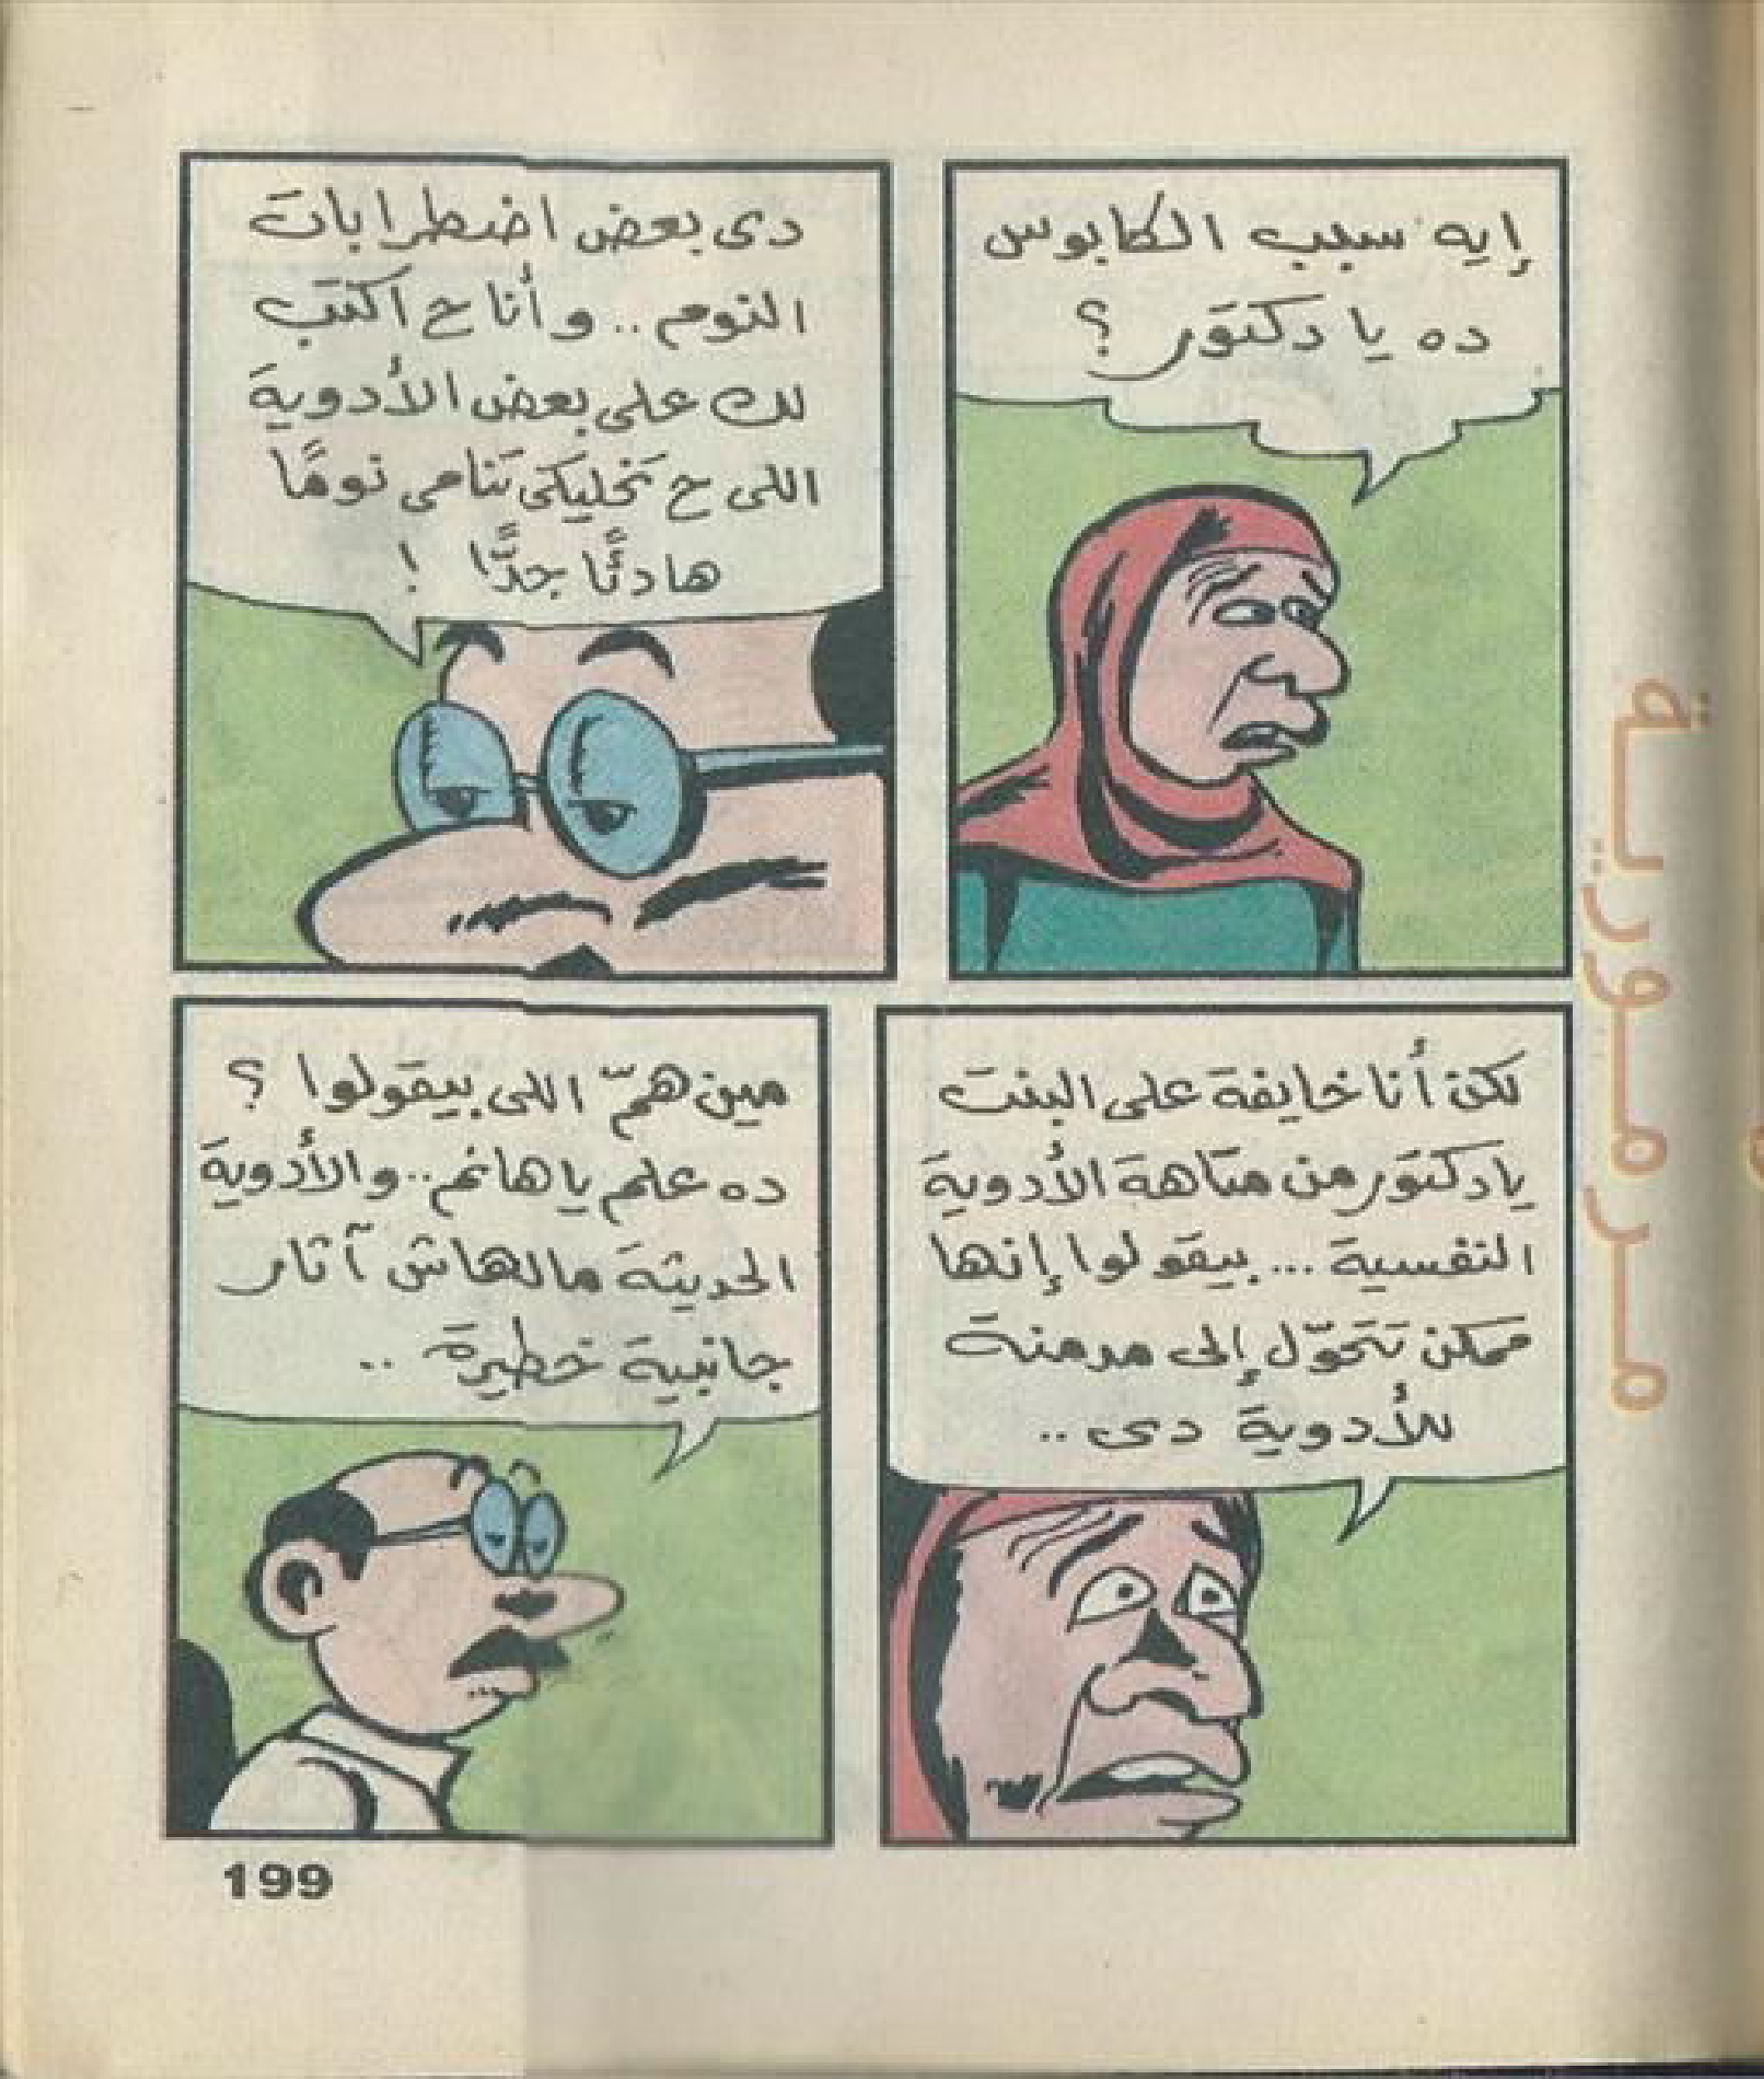 إيه سبب الكابوس
ده يا دكتور ؟
دى بعض اضطرابات
النوم .. وأنا ح أكتب
لك على بعض الأدوية
اللى ح تخليكى تنامى نومًا
هادئًا جدًّا !
لكن أنا خايفة على البنت
يا دكتور من متاهة الأدوية
النفسية ... بيقولوا إنها
ممكن تتحوّل إلى مدمنة
للأدوية دى ..
مين همّ اللى بيقولوا ؟
ده علم يا هانم .. والأدوية
الحديثة مالهاش آثار
جانبية خطيرة ..
199
مرمورية